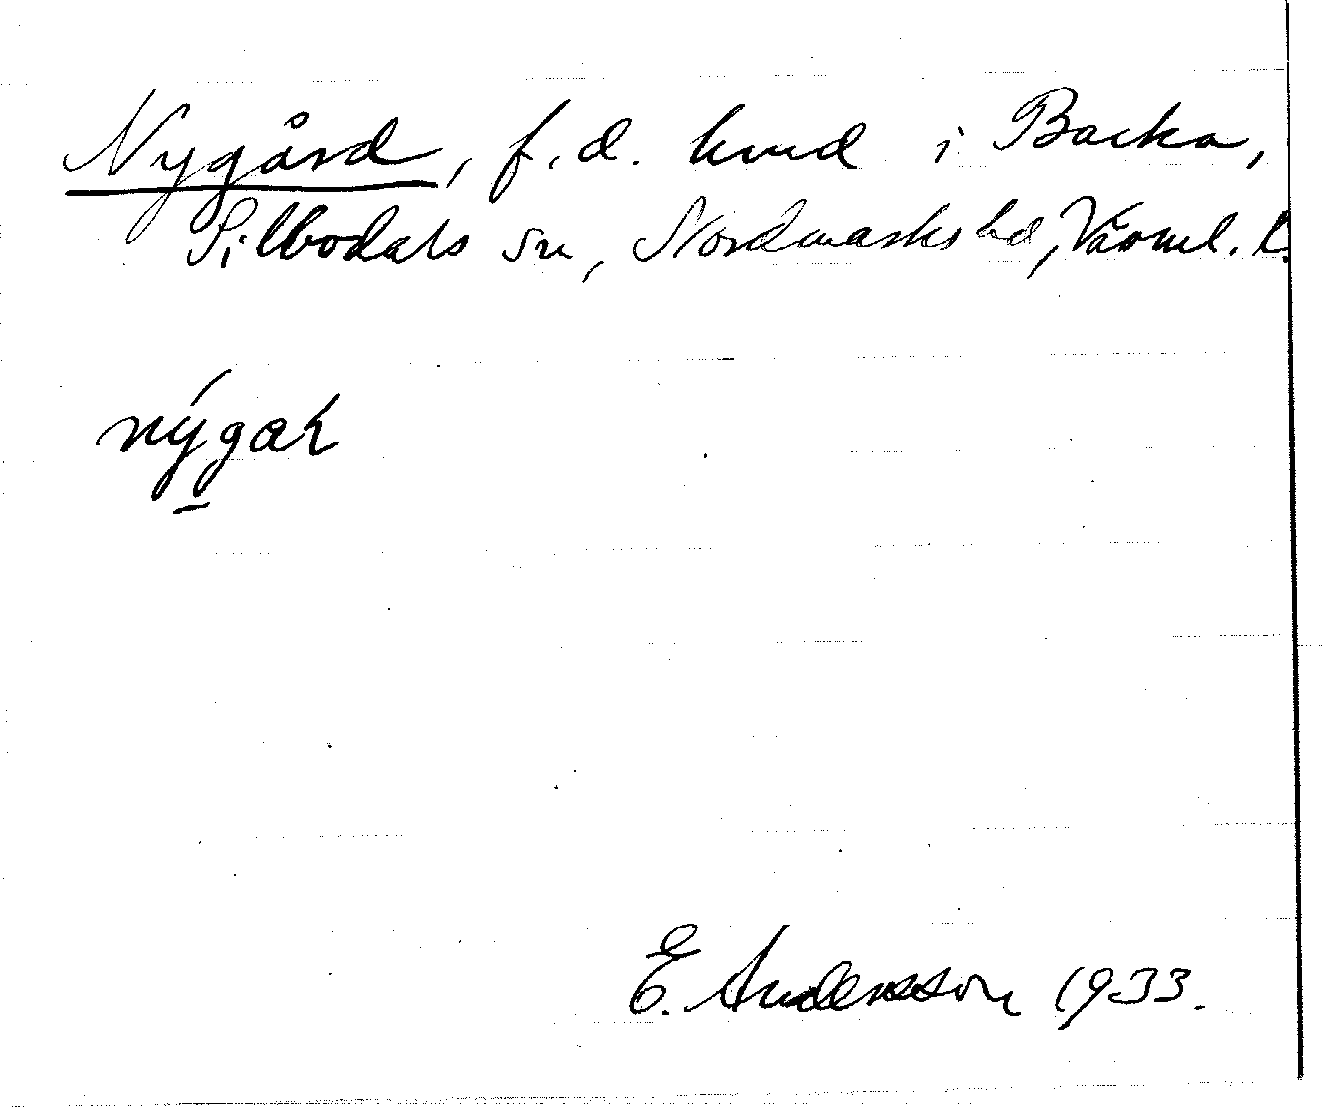 Nygård, f.d. hmd i Backa,
Silbodals sn, Nordmarks hd, Värml. l.
nýgaɽ
E. Andersson 1933.